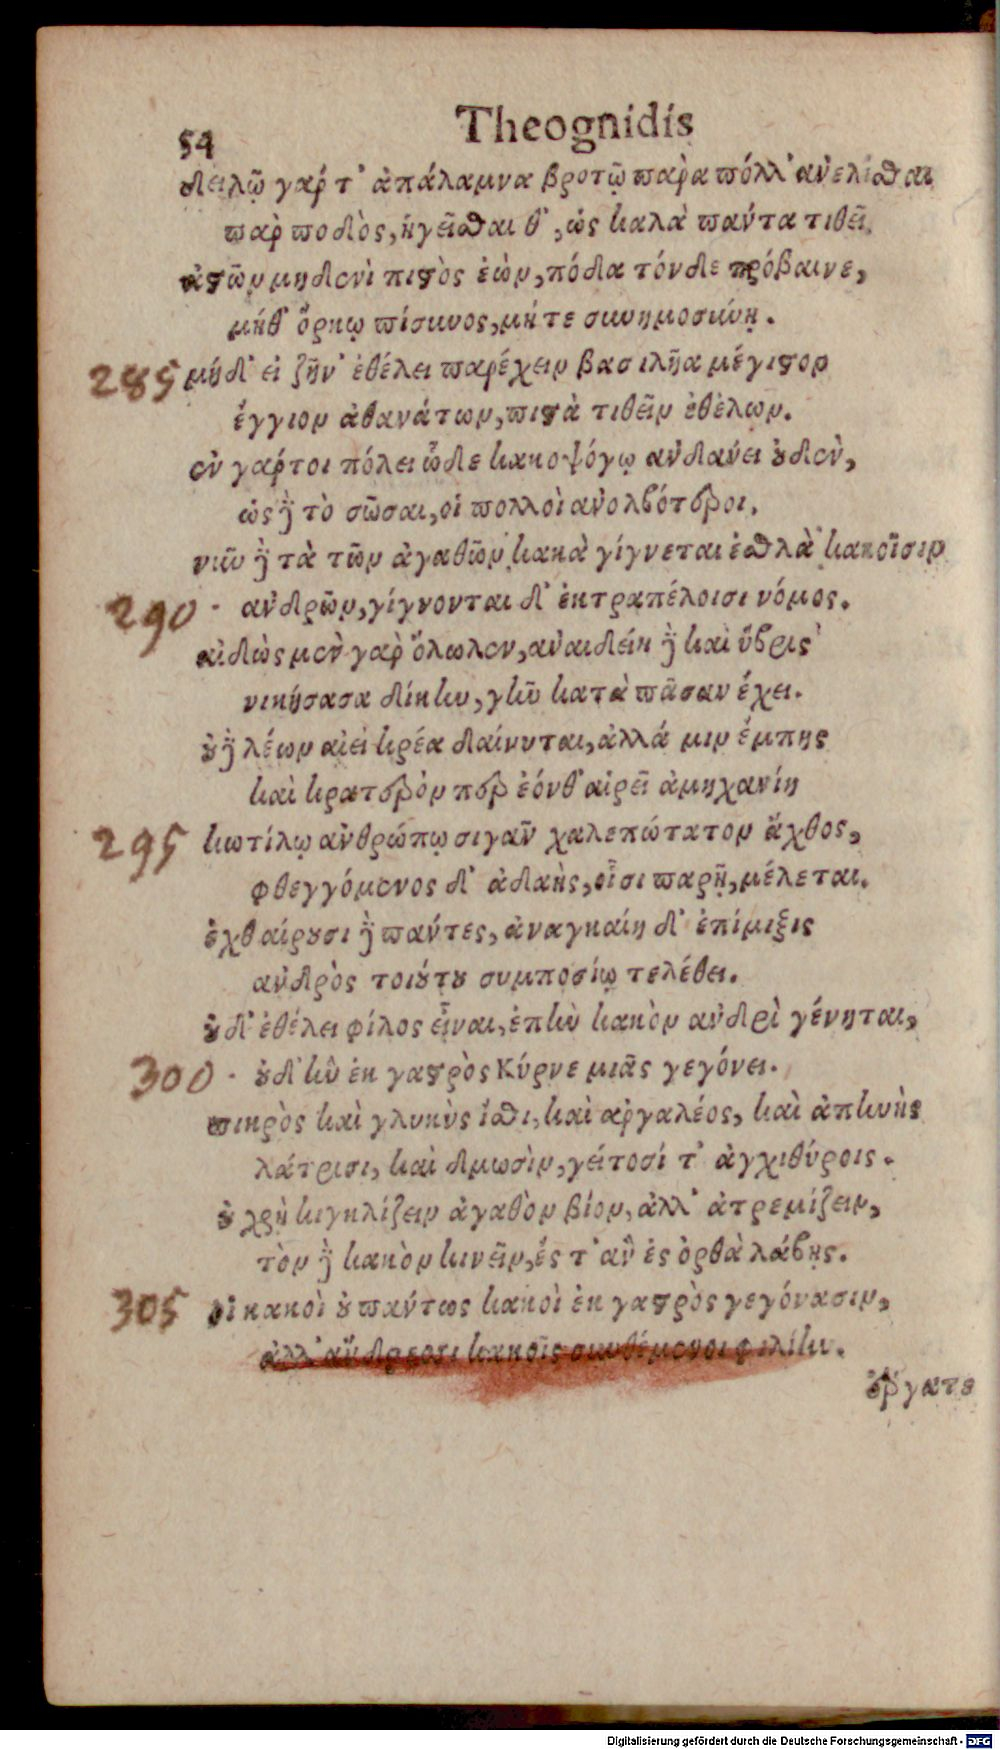 54
Theognidis
δειλῷ γάρ τ' ἀπάλαμνα βροτῷ παρὰ πόλλ' ἀνελέσθαι
παρ ποδὸς, ἡγεῖσθαι θ', ὡς καλὰ πάντα τιθεῖ.
ἀστῶν μηδενὶ πιστὸς ἐὼν, πόδα τόνδε πρόβαινε,
μήθ' ὅρκῳ πίσυνος, μήτε συνημοσύνῃ.
285 μήδ' εἰ ζῆν' ἐθέλει παρέχειν βασιλῆα μέγιστον
ἔγγιον ἀθανάτων, πιστὰ τιθεῖν ἐθέλων.
ἐν γάρτοι πόλει ὧδε κακοψόγῳ ἁνδάνει οὐδὲν,
ὡς δὲ τὸ σῶσαι, οἱ πολλοὶ ἀνολβότεροι.
νῦν δὲ τὰ τῶν ἀγαθῶν κακὰ γίγνεται ἐσθλὰ κακοῖσιν
290 ἀνδρῶν, γίγνονται δ' ἐκτραπέλοισι νόμος.
αἰδὼς μὲν γὰρ ὄλωλεν, ἀναιδείη δὲ καὶ ὕβρις
νικήσασα δίκην, γῆν κατὰ πᾶσαν ἔχει.
οὐδὲ λέων αἰεὶ κρέα δαίνυται, ἀλλά μιν ἔμπης
καὶ κρατερὸν περ ἐόνθ' αἱρεῖ ἀμηχανίη
295 κωτίλῳ ἀνθρώπῳ σιγᾶν χαλεπώτατον ἄχθος,
φθεγγόμενος δ' ἀδαὴς, οἷσι παρῇ, μέλεται.
ἐχθαίρουσι δὲ πάντες, ἀναγκαίη δ' ἐπίμιξις
ἀνδρὸς τοιούτου συμποσίῳ τελέθει.
οὐδ' ἐθέλει φίλος εἶναι, ἐπὴν κακὸν ἀνδρὶ γένηται,
300 οὐδ' ἢν ἐκ γαστρὸς Κύρνε μιᾶς γεγόνει.
πικρὸς καὶ γλυκὺς ἴσθι, καὶ ἀργαλέος, καὶ ἀπηνὴς
λάτρισι, καὶ δμωσὶν, γείτοσί τ' ἀγχιθύροις.
οὐ χρὴ κιγκλίζειν ἀγαθὸν βίον, ἀλλ' ἀτρεμίζειν,
τὸν δὲ κακὸν κινεῖν, ἔς τ' ἂν ἐς ὀρθὰ λάβῃς.
305 οἱ κακοὶ οὐ πάντως κακοὶ ἐκ γαστρὸς γεγόνασιν,
ἀλλ' ἄνδρεσσι κακοῖς συνθέμενοι φιλίην.
ἔργατε
Digitalisierung gefördert durch die Deutsche Forschungsgemeinschaft - DFG